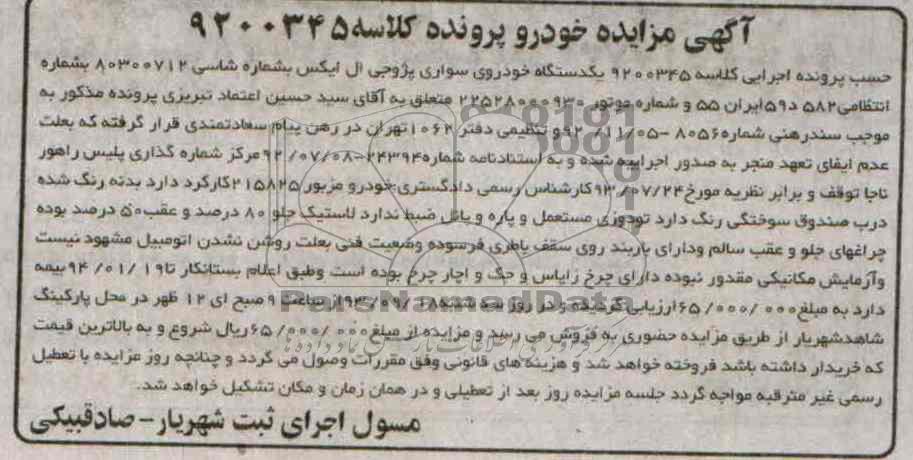 آگهی مزایده خودرو پرونده کلاسه ۹۲۰۰۳۴۵
حسب پرونده اجرایی کلاسه ۹۲۰۰۳۴۵ یکدستگاه خودروی سواری پژوجی ال ایکس بشماره شاسی ۸۰۳۰۰۷۱۲ بشماره
انتظامی ۵۸۲ د ۵۹ ایران ۵۵ و شماره موتور ۲۲۵۲۸۰۰۰۹۳۰ متعلق به آقای سید حسین اعتماد تبریزی پرونده مذکور به
موجب سندرهنی شماره ۸۰۵۶ -۹۲/۱۱/۰۵ و تنظیمی دفتر ۱۰۶۲ تهران در رهن پیام سعادتمندی قرار گرفته که بعلت
عدم ایفای تعهد منجر به صدور اجراییه شده و به استنادنامه شماره ۲۴۳۹۴-۹۲/۰۷/۰۸ مرکز شماره گذاری پلیس راهور
ناجا توقف و برابر نظریه مورخ ۹۳/۰۷/۲۴ کارشناس رسمی دادگستری خودرو مزبور ۲۱۵۸۲۵ کارکرد دارد بدنه رنگ شده
درب صندوق سوختگی رنگ دارد تودوزی مستعمل و پاره و پانل ضبط ندارد لاستیک جلو ۸۰ درصد و عقب ۵۰ درصد بوده
چراغهای جلو و عقب سالم ودارای باربند روی سقف باطری فرسوده وضعیت فنی بعلت روشن نشدن اتومبیل مشهود نیست
وآزمایش مکانیکی مقدور نبوده دارای چرخ زاپاس و جک و آچار چرخ بوده است وطبق اعلام بستانکار تا ۹۴/۰۱/۱۹ بیمه
دارد به مبلغ ۶۵/۰۰۰/۰۰۰ ارزیابی گردیده و در روز سه شنبه ۹۳/۰۹/۱۸ از ساعت ۹ صبح ای ۱۲ ظهر در محل پارکینگ
شاهدشهریار از طریق مزایده حضوری به فروش می رسد و مزایده از مبلغ ۶۵/۰۰۰/۰۰۰ ریال شروع و به بالاترین قیمت
که خریدار داشته باشد فروخته خواهد شد و هزینه های قانونی وفق مقررات وصول می گردد و چنانچه روز مزایده با تعطیل
رسمی غیر مترقبه مواجه گردد جلسه مزایده روز بعد از تعطیلی و در همان زمان و مکان تشکیل خواهد شد.
مسول اجرای ثبت شهریار- صادقبیکی
ParsNamadData